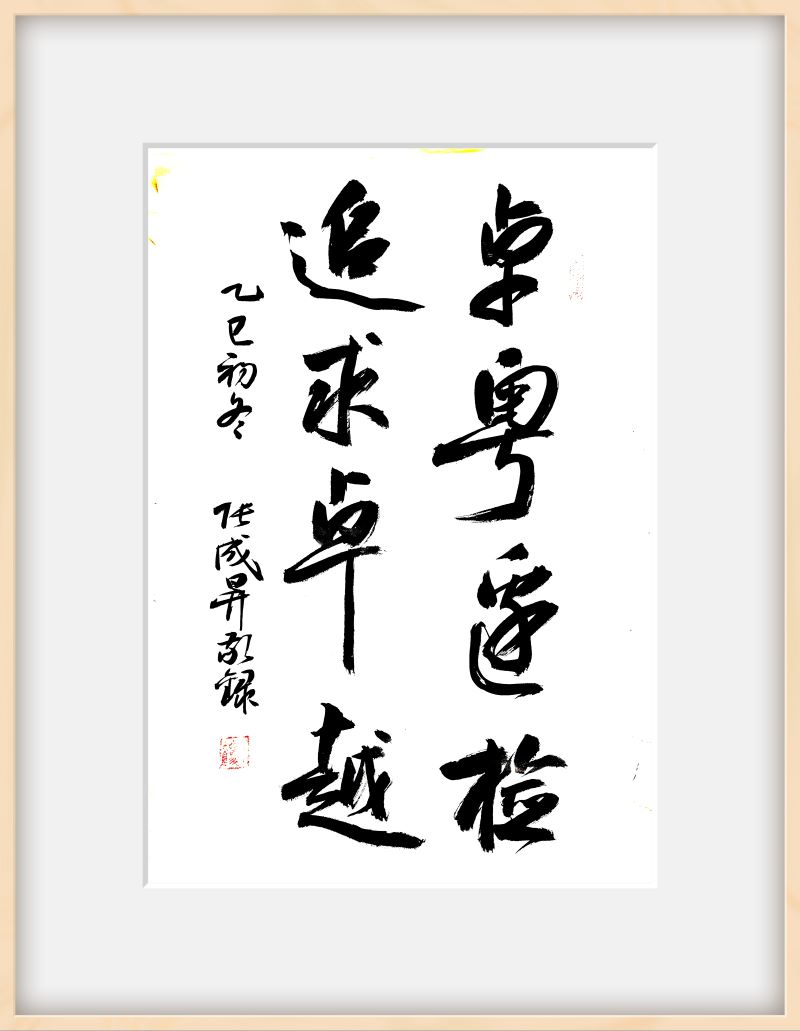 卓粤逢检
追求卓越
乙巳初冬 张成昇敬録